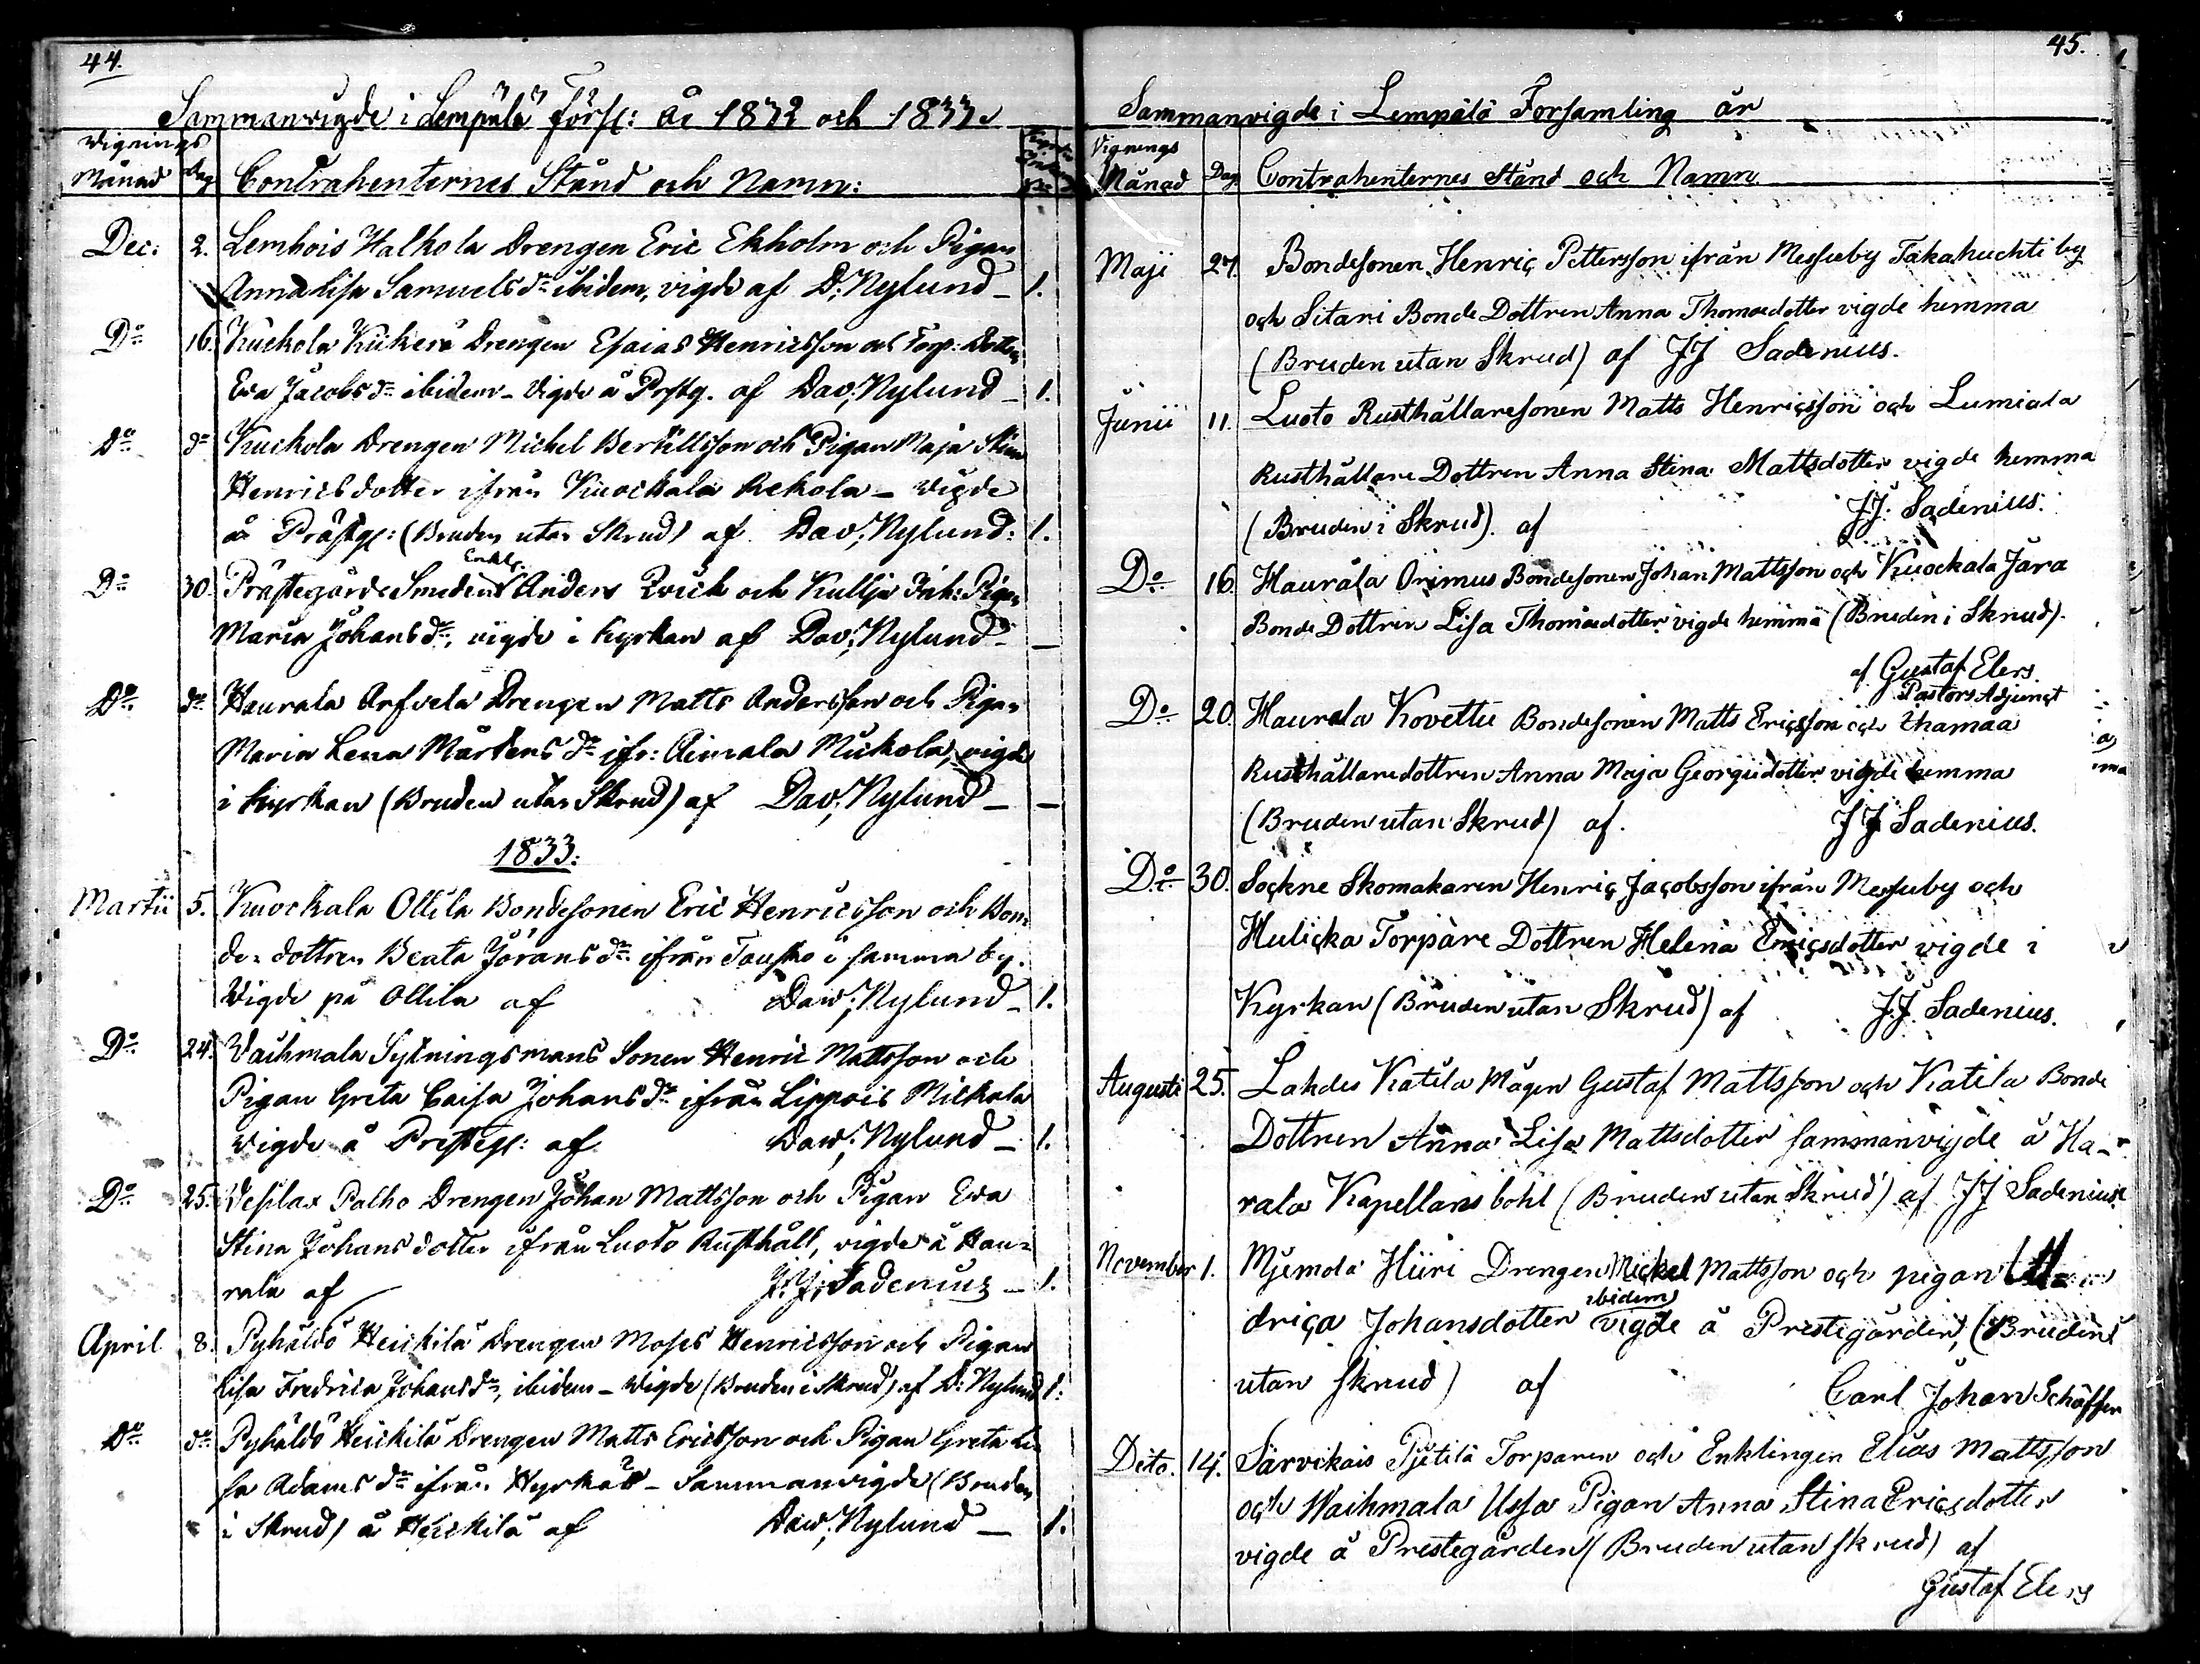 44.
Sammanvigde i Lempälä Förs: År 1832 och 1833.
Vignings
Månad Dag Contrahenternes Stånd och Namn:
Dec: 2. Lembois Halkola Drengen Eric Ekholm och Pigan
Anna Lisa Samuelsdr ibidem, vigde af D: Nylund – 1.
Do 16. Kuckola Drengen Esaias Henricsson och Torp:
Eva Jacobs dr ibidem – Vigde å Prstg. af Dav; Nylund – 1.
Do do Kuckola Drengen Michel Bertillsson och Pigan Maja Stina
Henricsdotter ifrån Kuockala Rekola – Vigde
å Prästg: (Bruden utan Skrud) af Dav; Nylund: 1.
Enkl:
Do 30. Prästegårds Smeden Anders och Kullja Inh: Pigan
Maria Johansdr, vigde i Kyrkan af Dav; Nylund – –
Do do Haurala Arfvela Drengen Matts Andersson och Pigan
Maria Lena Mårtens dr ifr: Aimala Muckola, vigde
i Kyrkan (Bruden utan Skrud) af Dav; Nylund – –
1833:
Martii 5. Kuockala Ollila Bondesonen Eric Henricsson och Bon-
de-dottren Beata Jörans dr ifrån i samma by.
Vigde på Ollila af Daw; Nylund – 1.
Do 24. Vaihmala Sytningsmans Sonen Henric Mattsson och
Pigan Greta Caisa Johans dr ifrån Lippois Mickola
Vigde å Presteg: af Daw; Nylund – 1.
Do 25. Vesilax Palho Drengen Johan Mattsson och Pigan Eva
Stina Johans dotter ifrån Luoto Rusthåll, vigde å Hau-
rala af J. J. Sadenius – 1.
April 8. Pyhäldö Heickilä Drengen Moses Henricsson och Pigan
Lisa Fredrica Johansdr, ibidem – Vigde (Bruden i Skrud) af D: Nylund 1:
Do do Pyhäldö Heickilä Drengen Matts Ericsson och Pigan Greta Li-
sa Adams dr ifrån – Sammanvigde (Bruden
i Skrud) å Heickilä af Daw; Nylund – 1.
45.
Sammanvigde i Lempälä Forsamling år
Vignings
Månad Dag Contrahenternes Stånd och Namn.
Maji 27. Bondesonen Henric Pettersson ifrån Messuby Takahuchti by
och Sitari Bonde Dottren Anna Thomædotter vigde hemma
(Bruden utan Skrud) af JJ Sadenius.
Junii 11. Luoto Rusthållaresonen Matts Henricsson och Lumiala
Rusthållare Dottren Anna Stina Mattsdotter vigde hemma
(Bruden i Skrud) af JJ. Sadenius.
Do 16. Haurala Orimus Bondesonen Johan Mattsson och Kuockala Jära
Bonde Dottren Lisa Thomædotter vigde hemma (Bruden i Skrud).
af Gustaf Elers.
Pastors Adjunct
Do 20. Haurala Kovettu Bondesonen Matts Ericsson och
Rusthållaredottren Anna Maja Georgiidotter vigde hemma
(Bruden utan Skrud) af. JJ Sadenius.
Do 30. Sockne Skomakaren Henric Jacobsson ifrån Messuby och
Hulicka Torpare Dottren Helena Ericsdotter vigde i
Kyrkan (Bruden utan Skrud) af J.J. Sadenius.
Augusti 25. Lahdes Katila Mågen Gustaf Mattsson och Katila Bonde
Dottren Anna Lisa Mattsdotter sammanvigde å Ha-
rala Kapellans bohl (Bruden utan Skrud) af JJ Sadenius
November 1. Mjemola Hiiri Drengen Mickel Mattsson och pigan
drica Johansdotter ibidem vigde å Prestegården, (Bruden
utan skrud) af Carl Johan Schäffer
Dito. 14. Särvikais Pjetilä Torparen och Enklingen Elias Mattsson
och Waihmala Ussa Pigan Anna Stina Ericsdotter
vigde å Prestegården (Bruden utan skrud) af
Gustaf Elers